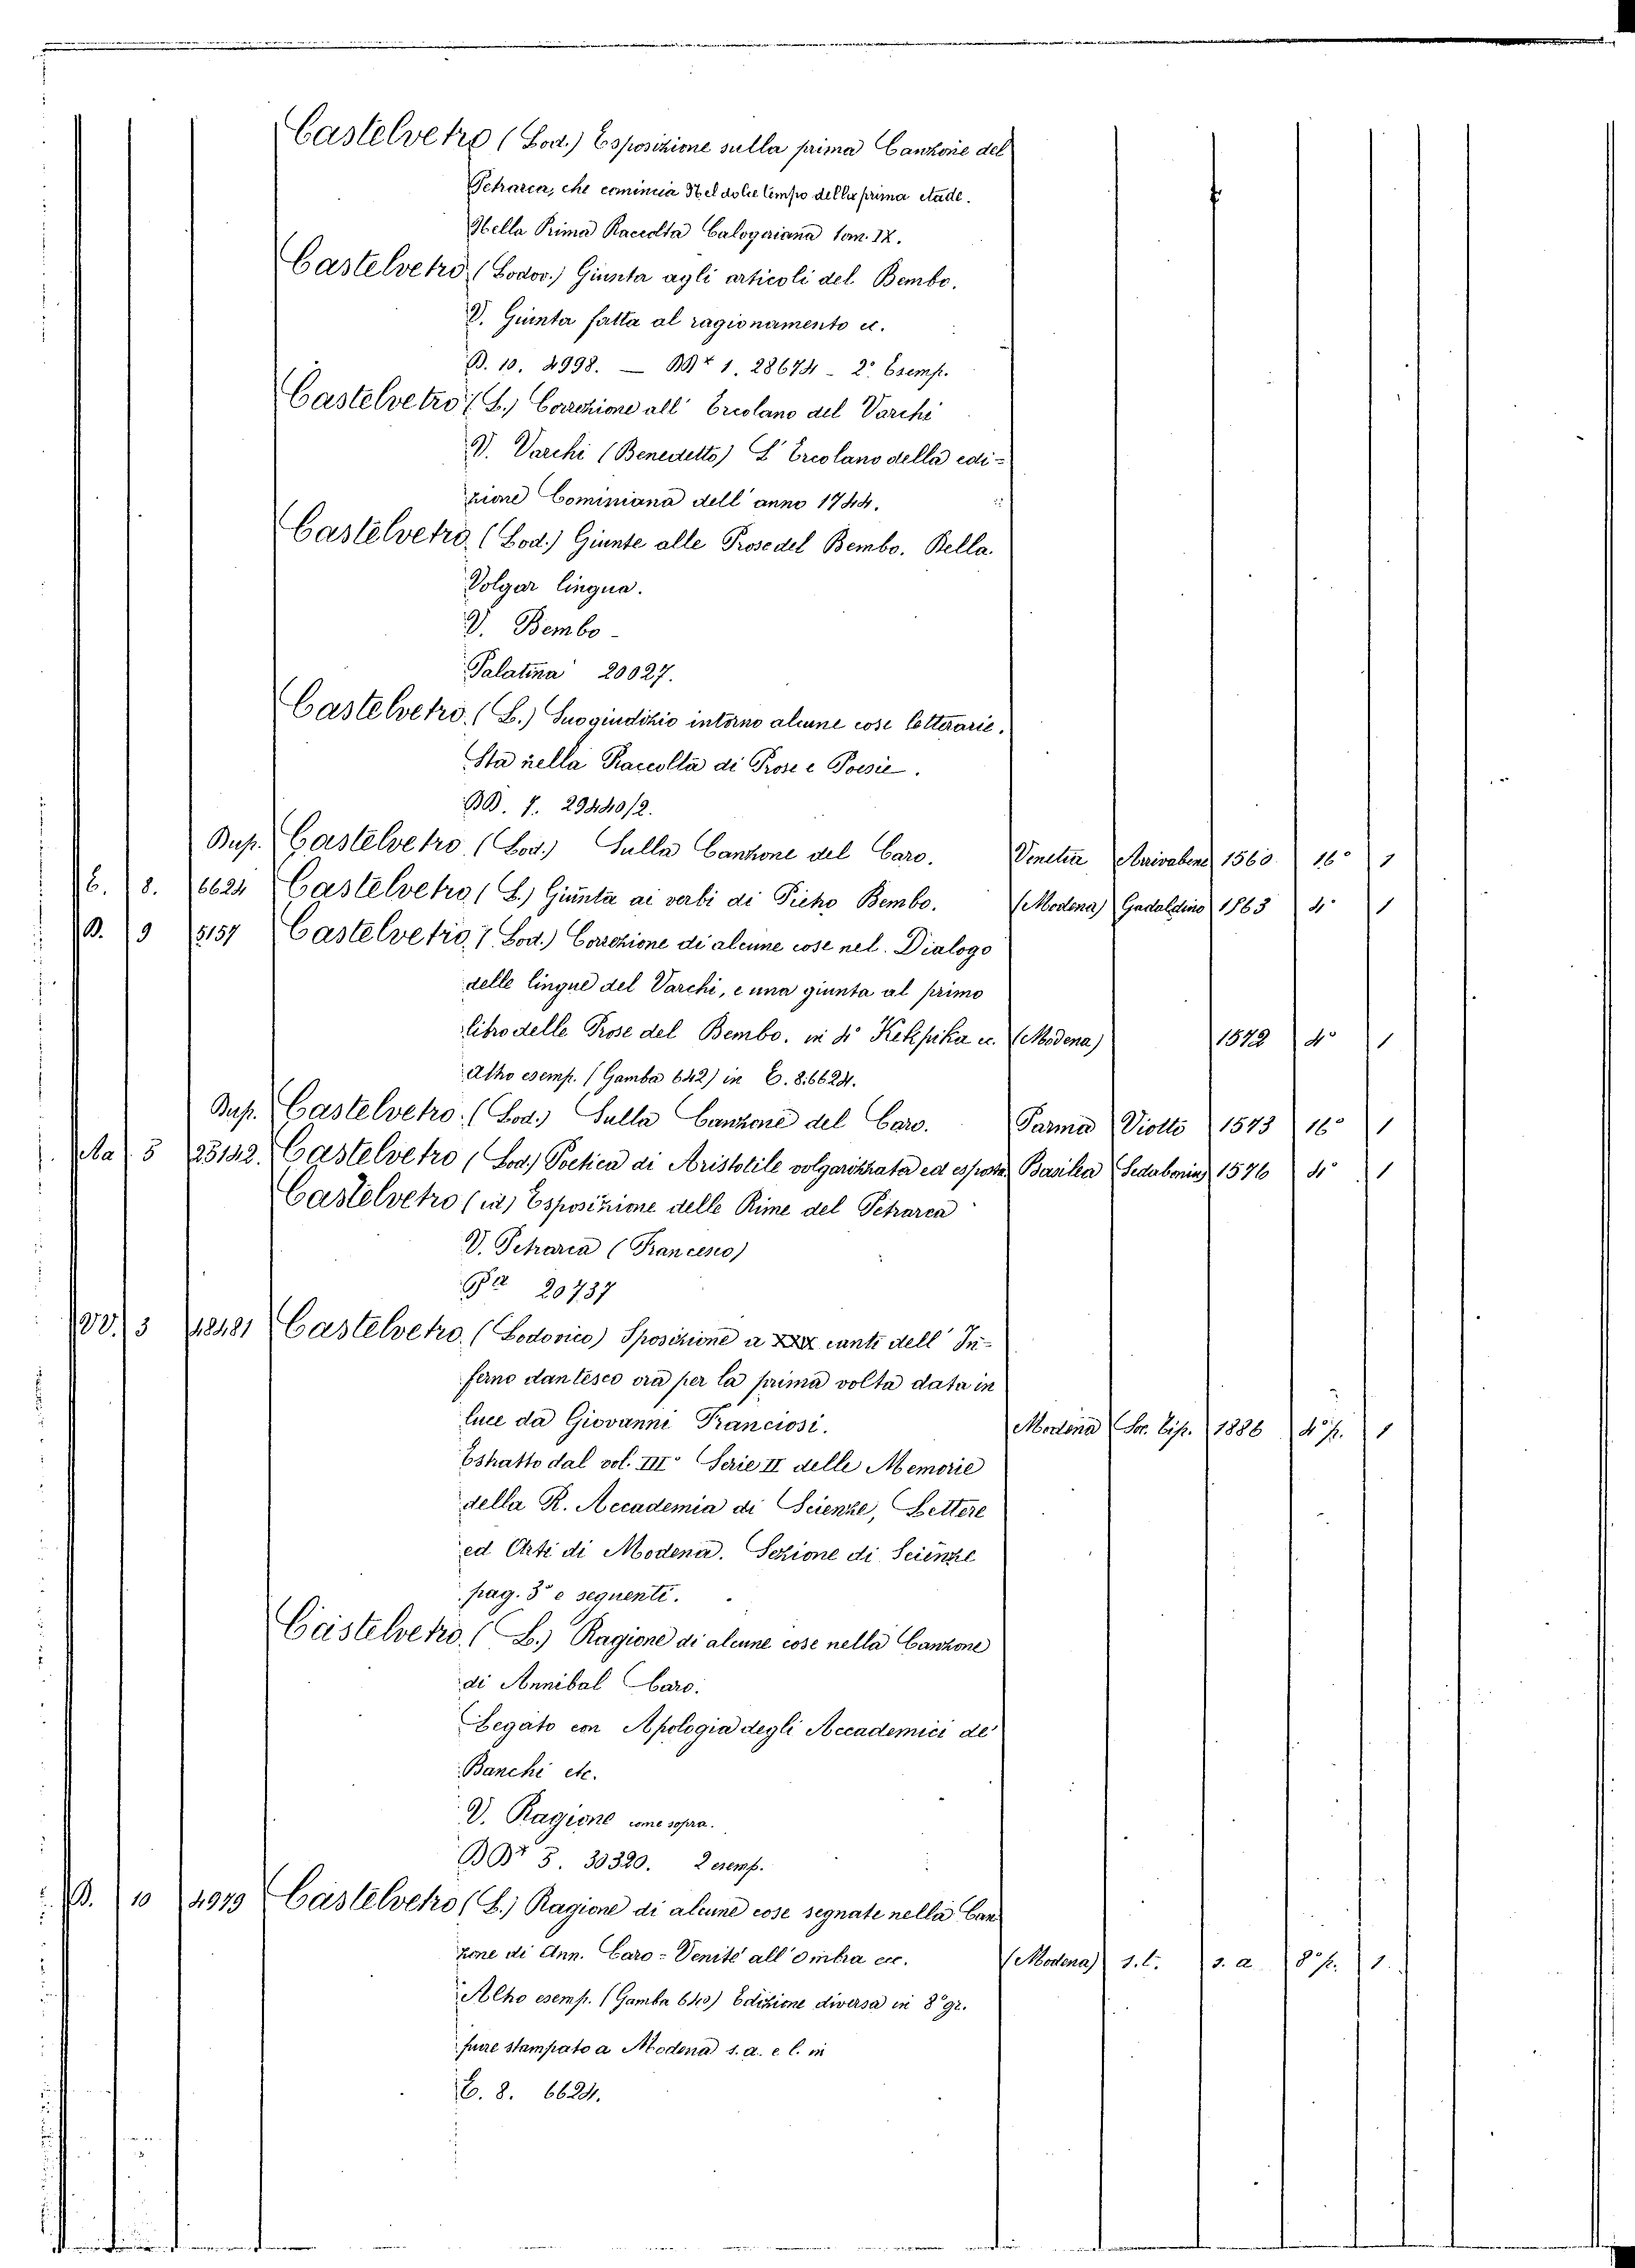 Castelvetro (Lod.) Esposizione sulla prima Canzone del
Petrarca, che comincia Nel dolce tempo della prima etade.
Nella Prima Raccolta Calogeriana tom. IX.
Castelvetro (Lodov.) Giunta agli articoli del Bembo.
V. Giunta fatta al ragionamento ec.
B. 10. 4998. — 1. 28674 - 2° Esemp.
Castelvetro (L.) Correzione all' Ercolano del Varchi
V. Varchi (Benedetto) L' Ercolano della edi-
zione Cominiana dell' anno 1744.
Castelvetro (Lod.) Giunte alle Prose del Bembo. Della
Volgar lingua.
V. Bembo -
Palatina 20027.
Castelvetro (L.) Suo giudizio intorno alcune cose letterarie.
Sta nella Raccolta di Prose e Poesie.
BB. 7. 29440/2.
Bup. Castelvetro (Lod.) Sulla Canzone del Caro. Venetia Arrivabene 1560 16° 1
E. 8. 6624 Castelvetro (L.) Giunta ai verbi di Pietro Bembo. (Modena) Gadaldino 1563 4° 1
B. 9 5157 Castelvetro (Lod.) Correzione di alcune cose nel Dialogo
delle lingue del Varchi, e una giunta al primo
libro delle Prose del Bembo. in 4° Kekrika ec. (Modena) 1572 4° 1
Altro esemp. (Gamba 642) in E. 8. 6624.
Bup. Castelvetro (Lod.) Sulla Canzone del Caro. Parma Viotto 1573 16° 1
Ma 5 25142. Castelvetro (Lod.) Poetica di Aristotile volgarizzata ed esposta Basilea Sedabonis 1576 4° 1
Castelvetro (id) Esposizione delle Rime del Petrarca
V. Petrarca (Francesco)
Pa 20737
VV. 3 48481 Castelvetro (Lodovico) Sposizione a XXIX canti dell' In-
ferno dantesco ora per la prima volta data in
luce da Giovanni Franciosi. Modena Soc. Tip. 1886 4° p. 1
Estratto dal vol. III° Serie II delle Memorie
della R. Accademia di Scienze, Lettere
ed Arti di Modena. Sezione di Scienze
pag. 3° e seguenti.
Castelvetro (L.) Ragione di alcune cose nella Canzone
di Annibal Caro.
Legato con Apologia degli Accademici de'
Banchi etc.
V. Ragione come sopra.
BB+ 3. 30320. 2 esemp.
B. 10 4979 Castelvetro (L.) Ragione di alcune cose segnate nella Can
zone di Ann. Caro - Venite all' ombra ecc. (Modena) s. l. s. a 8° p. 1.
Altro esemp. (Gamba 640) Edizione diversa in 8° gr.
pure stampato a Modena s. a. e l. in
E. 8. 6624.